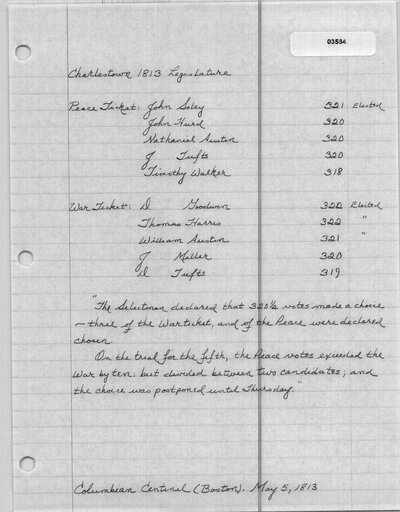 03534
Charlestown 1813 Legislature
Peace Ticket: John Soley 321 Elected
John Hurd 320
Nathanial Austin 320
J Tufts 320
Timothy Walker 318
War Ticket: D Goodwin 322 Elected
Thomas Harris 322 "
William Austin 321 "
J Miller 320
D Tufts 319
"The Selectmen declared that 320½ votes made a choice
– three of the War ticket, and of the Peace were declared
chosen.
On the trial for the fifth, the Peace votes exceeded the
War by ten; but divided between two candidates; and
the choice was postponed until Thursday."
Columbian Centinel (Boston). May 5, 1813